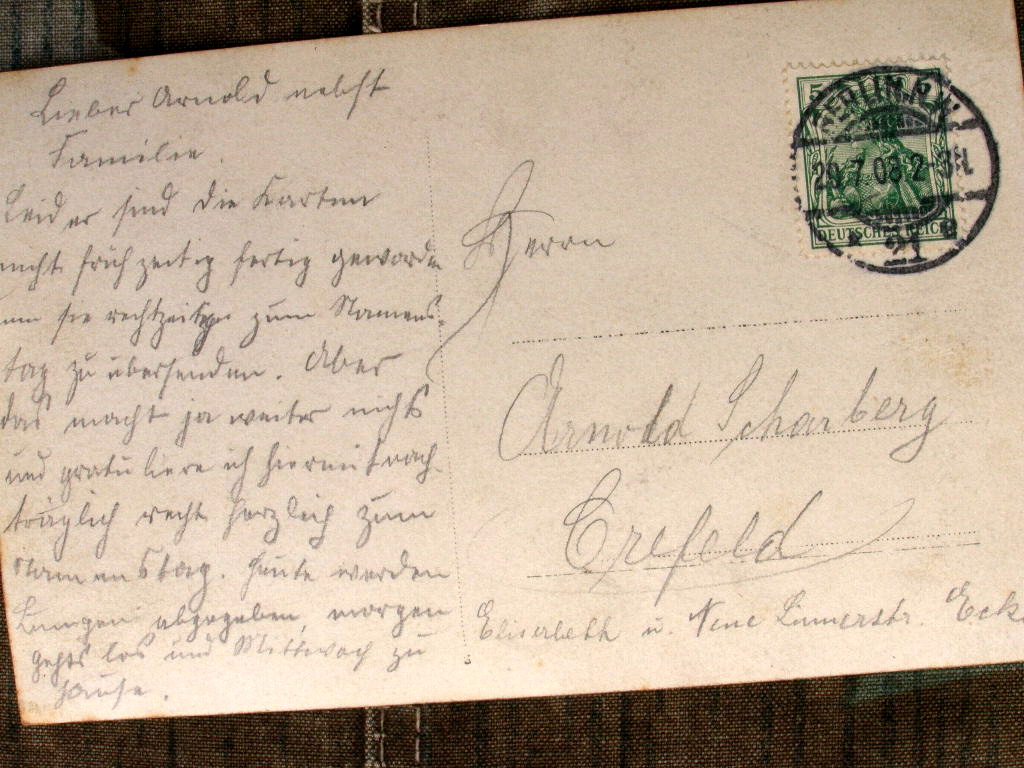 Lieber Arnold nebst
Familie.
Leider sind die Karten
nicht frühzeitig fertig geworden
um sie rechtzeitig zum Namens-
tag zu übersenden. Aber
das macht ja weiter nichts
und gratuliere ich hiermit nach-
träglich recht herzlich zum
Namenstag. Heute werden
abgegeben, morgen
gehts los und Mittwoch zu
Hause.
5
BERLIN N.W.
20.7.08.2-3N.
* 21
DEUTSCHES REICH
Herrn
Arnold Scharberg
Crefeld
Elisabeth u. Neue Linnerstr. Ecke